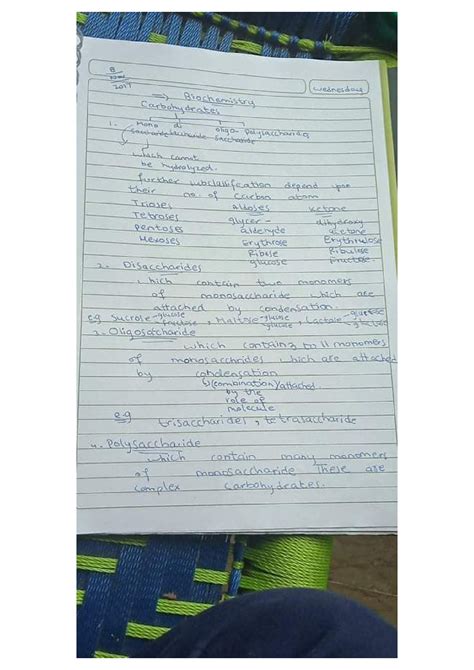 8
2017
Wednesday
=> Biochemistry
Carbohydrates
1. Mono di oligo- Polysaccharides
Saccharide saccharide saccharide
which cannot
be hydrolyzed.
further subclassification depend upon
their no. of carbon atom
Trioses Aldoses Ketone
Tetroses glycer- dihydroxy
Pentoses aldehyde acetone
Hexoses Erythrose Erythrulose
Ribose Ribulose
glucose Fructose.
2. Disaccharides
which contain two monomers
of monosaccharide which are
attached by condensation.
eg Sucrose-glucose fructose, Maltose-glucose glucose, Lactose-glucose
3. Oligosaccharide
which contain 3 to 11 monomers
of monosaccharides which are attached
by condensation
(combination)/attached
by the
role of
molecule
eg
trisaccharides, tetrasaccharide
4. Polysaccharide
which contain many monomers
of monosaccharide These are
complex carbohydrates.